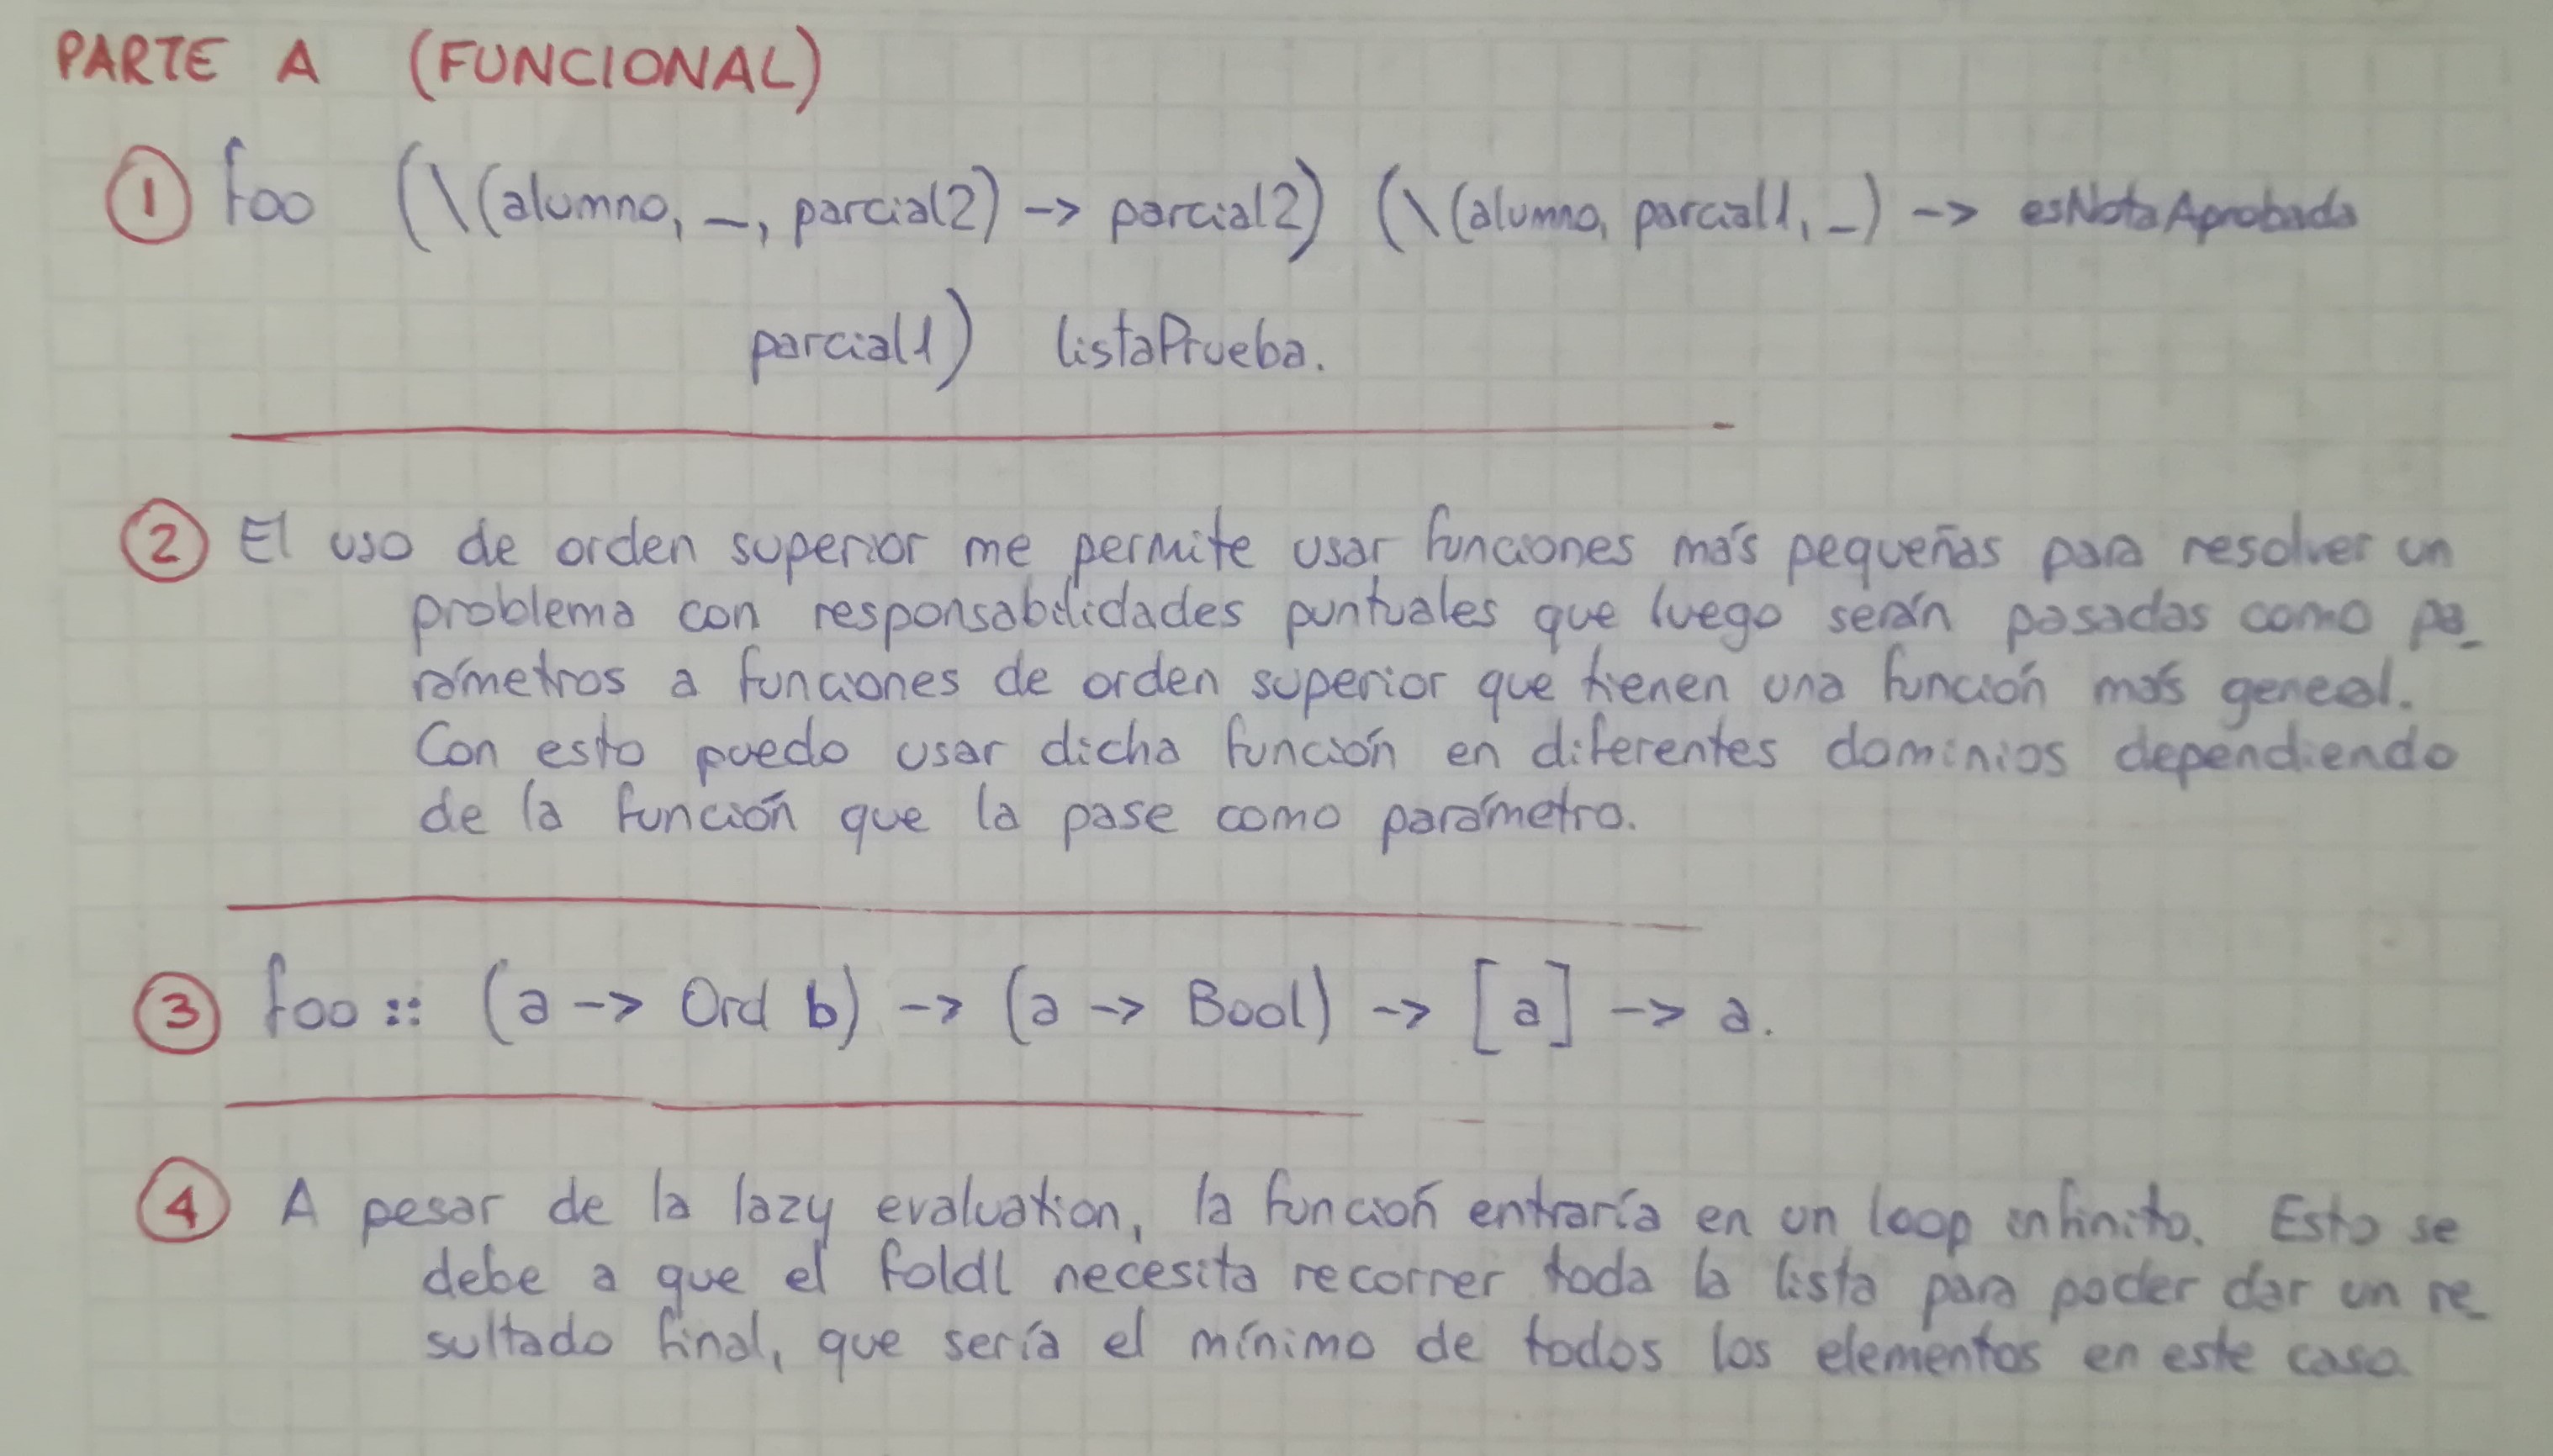 PARTE A (FUNCIONAL)
① foo (\(alumno, _, parcial2) -> parcial2) (\(alumno, parcial1, _) -> esNotaAprobada
parcial1) listaPrueba.
② El uso de orden superior me permite usar funciones más pequeñas para resolver un
problema con responsabilidades puntuales que luego serán pasadas como pa_
rámetros a funciones de orden superior que tienen una función más general.
Con esto puedo usar dicha función en diferentes dominios dependiendo
de la función que la pase como parámetro.
③ foo :: (a -> Ord b) -> (a -> Bool) -> [a] -> a.
④ A pesar de la lazy evaluation, la función entraría en un loop infinito. Esto se
debe a que el foldl necesita recorrer toda la lista para poder dar un re_
sultado final, que sería el mínimo de todos los elementos en este caso